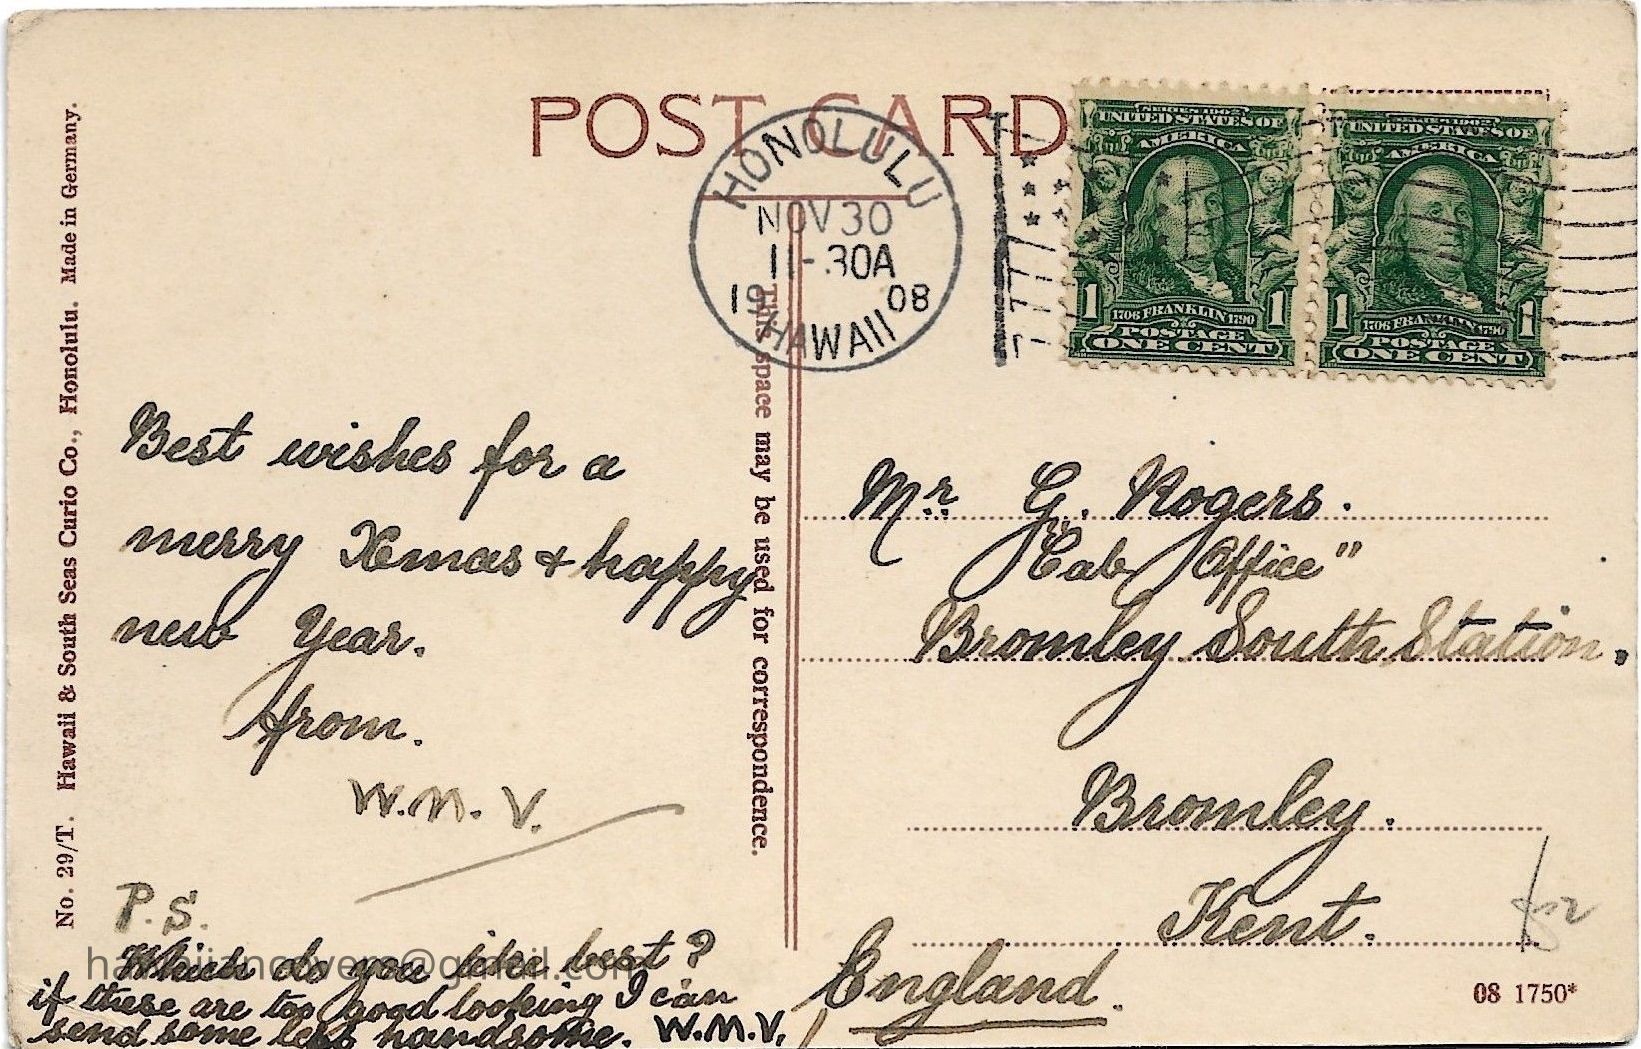 POST CARD
HONOLULU
NOV 30
11-30A
1908
HAWAII
SERIES 1902
UNITED STATES OF
AMERICA
1 1
1706 FRANKLIN 1790
POSTAGE
ONE CENT
SERIES 1902
UNITED STATES OF
AMERICA
1 1
1706 FRANKLIN 1790
POSTAGE
ONE CENT
No. 29/T. Hawaii & South Seas Curio Co., Honolulu. Made in Germany.
This space may be used for correspondence.
Best wishes for a
merry Xmas + happy
new Year.
from.
W.M.V.
P.S.
Which do you like best?
if these are too good looking I can
send some less handsome. W.M.V.
Mr. G. Rogers.
"Cab Office"
Bromley South Station.
Bromley.
Kent.
England.
08 1750*